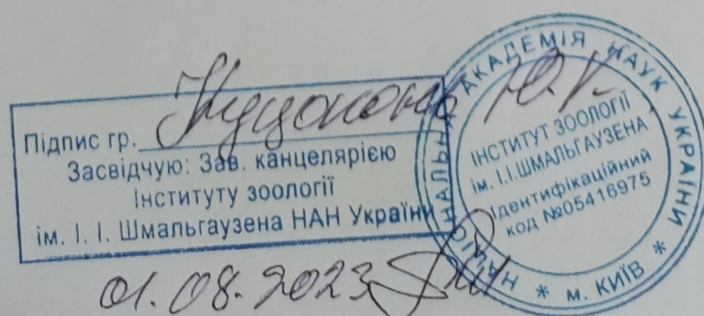 Підпис гр. Куцоконь Ю.К.
Засвідчую: Зав. канцелярією
Інституту зоології
ім. І. І. Шмальгаузена НАН України
01.08.2023
НАЦІОНАЛЬНА АКАДЕМІЯ НАУК УКРАЇНИ
* м. КИЇВ *
ІНСТИТУТ ЗООЛОГІЇ
ім. І.І.ШМАЛЬГАУЗЕНА
Ідентифікаційний
код №05416975